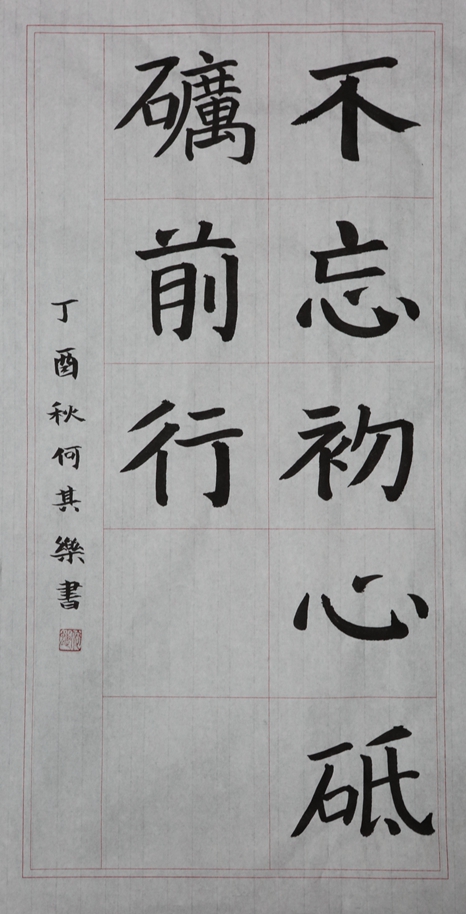 不忘初心砥
礪前行
丁酉秋何其樂書